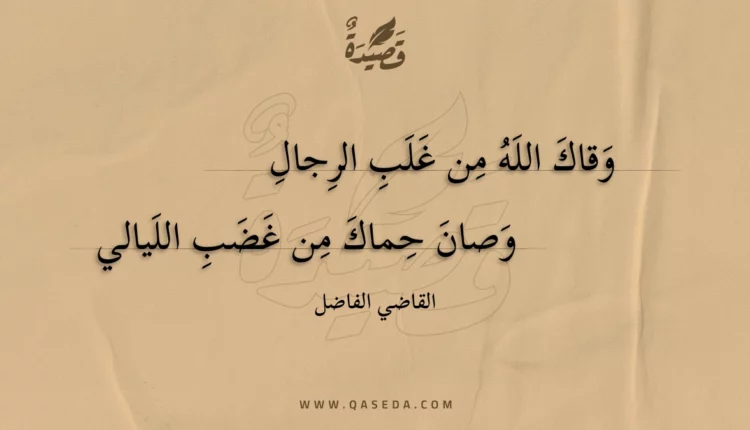 قَصِيْدَةٌ
وَقاكَ اللَهُ مِن غَلَبِ الرِجالِ
وَصانَ حِماكَ مِن غَضَبِ اللَيالي
القاضي الفاضل
WWW.QASEDA.COM